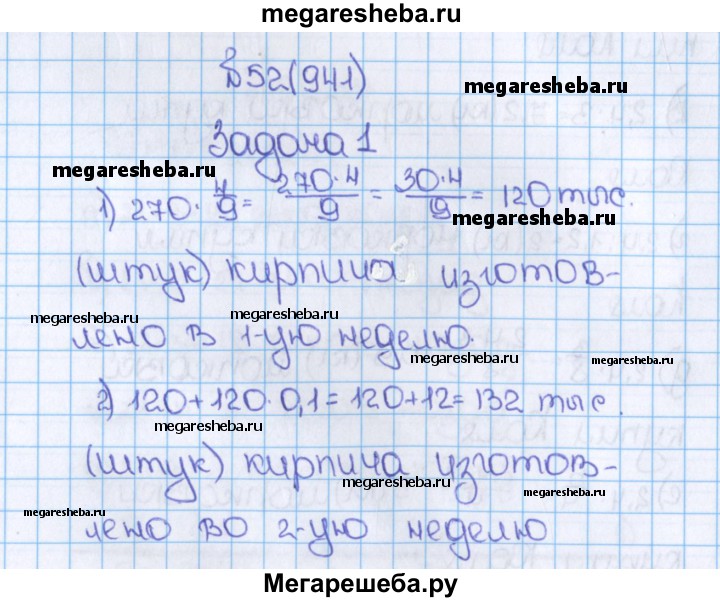 megaresheba.ru
№52(941)
megaresheba.ru
Задача 1
megaresheba.ru
1) 270 · 4/9 = 270·4/9 = 30·4/9 = 120 тыс.
megaresheba.ru
(штук) кирпича изготов-
megaresheba.ru megaresheba.ru
лено в 1-ую неделю.
megaresheba.ru megaresheba.ru
2) 120+120·0,1=120+12=132 тыс.
megaresheba.ru megaresheba.ru
(штук) кирпича изготов-
megaresheba.ru megaresheba.ru
megaresheba.ru megaresheba.ru
лено во 2-ую неделю
Мегарешеба.ру